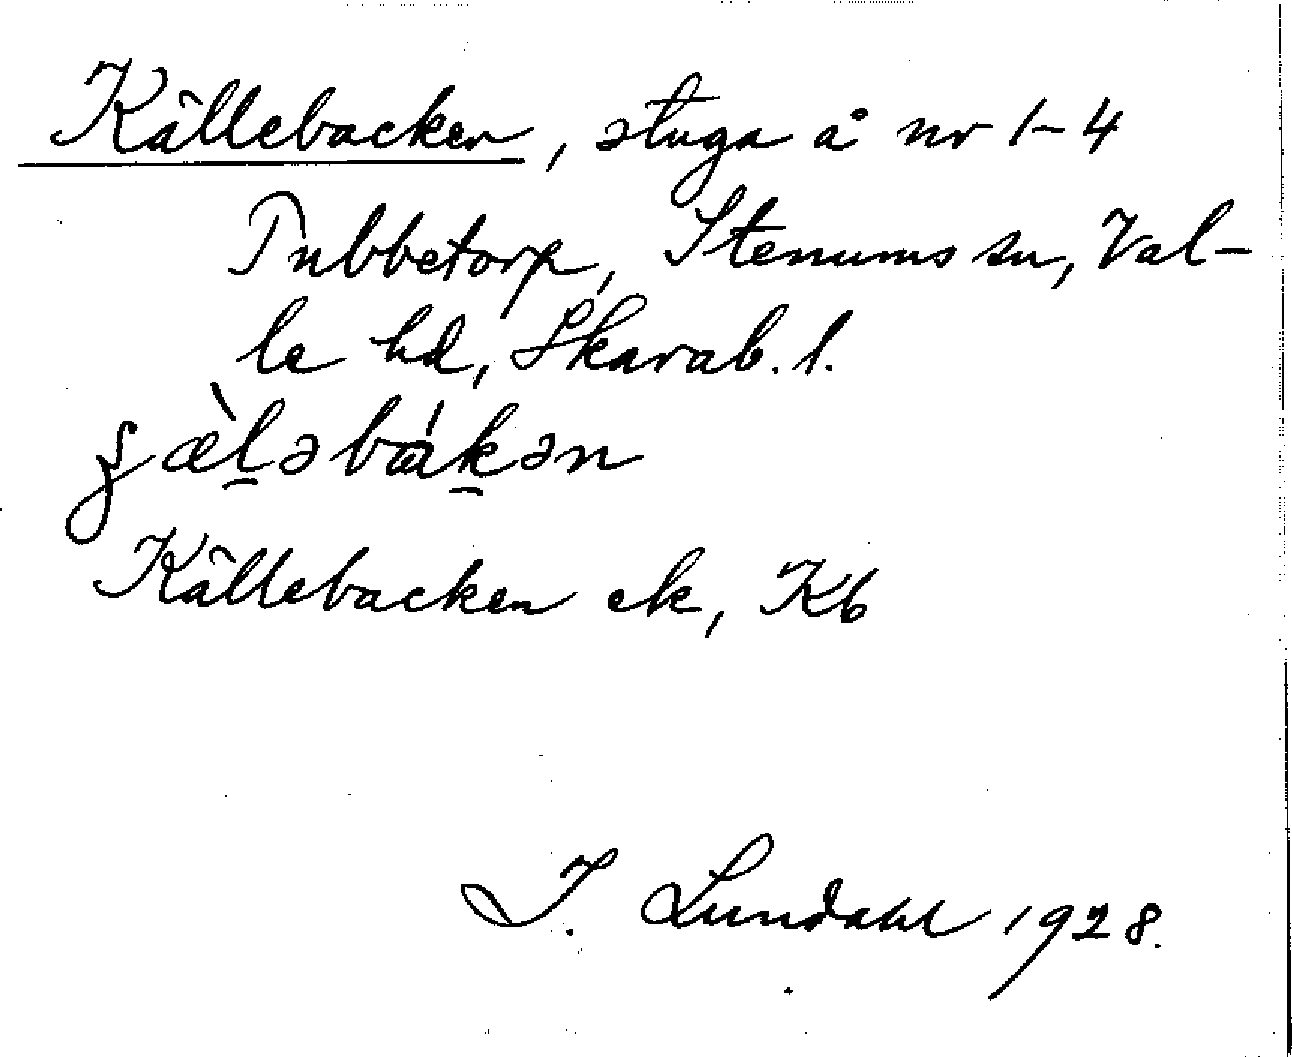 Källebacken, stuga å nr 1-4
Tubbetorp, Stenums sn, Val-
le hd, Skarab. l.
ʂæ̀l̠əbák̠ən
Källebacken ek, Kb
I. Lundahl 1928.